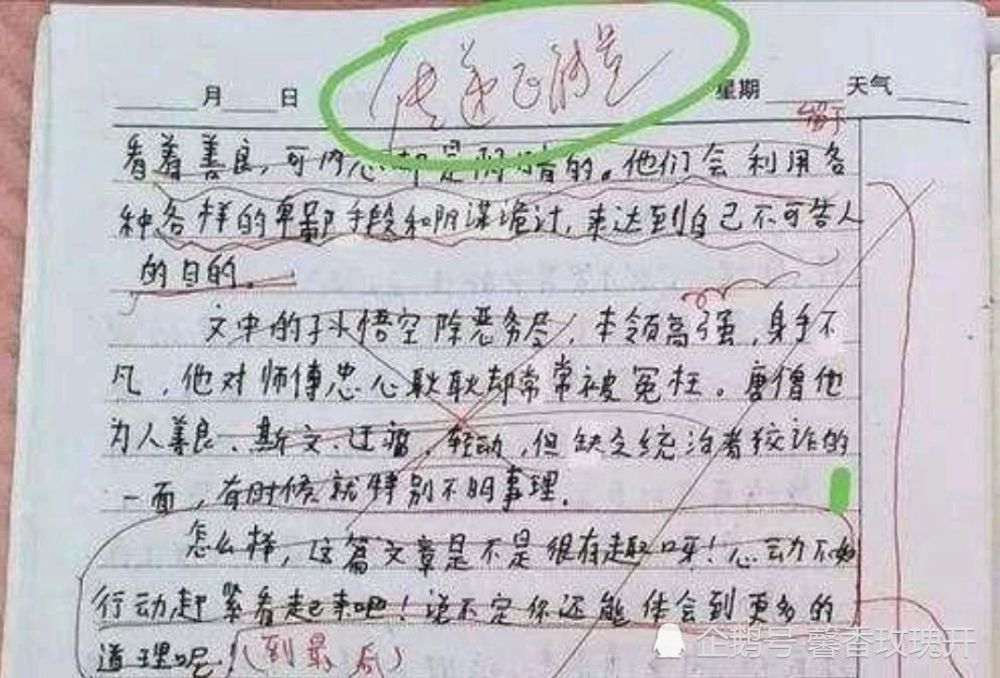 传递正能量
月 日 星期 天气
看着善良，可内心却是阴暗的。他们会利用各
种各样的卑鄙手段和阴谋诡计，来达到自己不可告人
的目的。
文中的孙悟空除恶务尽，本领高强，身手不
凡，他对师傅忠心耿耿却常常被冤枉。唐僧他
为人善良、斯文、迂腐、轻动，但缺乏统治者狡诈的
一面，有时候就特别不明事理。
怎么样，这篇文章是不是很有趣呀！心动不如
行动赶紧看起来吧！说不定你还能体会到更多的
道理呢！（到最后）
企鹅号 馨香玫瑰开